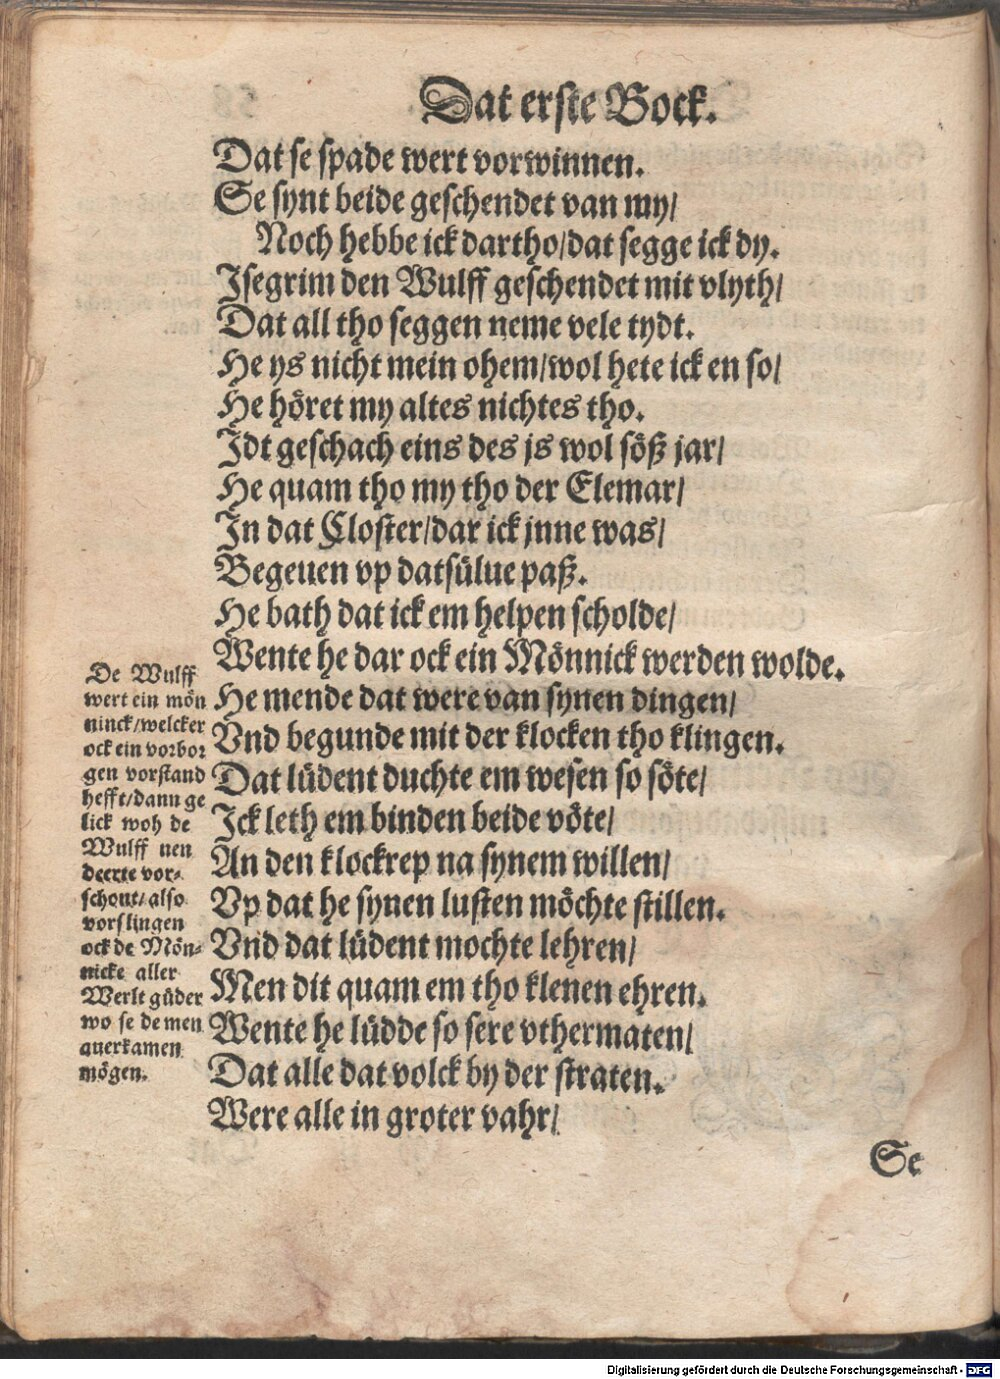 Dat erste Bock.
Dat se spade wert vorwinnen.
Se synt beide geschendet van my/
Noch hebbe ick dartho/dat segge ick dy.
Isegrim den Wulff geschendet mit vlyth/
Dat all tho seggen neme vele tydt.
He ys nicht mein ohem/wol hete ick en so/
He höret my altes nichtes tho.
Idt geschach eins des js wol söß jar/
He quam tho my tho der Elemar/
In dat Closter/dar ick jnne was/
Begeuen vp datsülue paß.
He bath dat ick em helpen scholde/
Wente he dar ock ein Mönnick werden wolde.
He mende dat were van synen dingen/
Vnd begunde mit der klocken tho klingen.
Dat lüdent duchte em wesen so söte/
Ick leth em binden beide vöte/
An den klockrep na synem willen/
Vp dat he synen lusten möchte stillen.
Vnd dat lüdent mochte lehren/
Men dit quam em tho klenen ehren.
Wente he lüdde so sere vthermaten/
Dat alle dat volck by der straten.
Were alle in groter vahr/
De Wulff
wert ein mön
ninck/welcker
ock ein vorbor
gen vorstand
hefft/dann ge
lick woh de
Wulff nen
deerte vor-
schont/also
vorslingen
ock de Mön-
nicke aller
Werlt güder
wo se de men
auerkamen
mögen.
Se
Digitalisierung gefördert durch die Deutsche Forschungsgemeinschaft - DFG